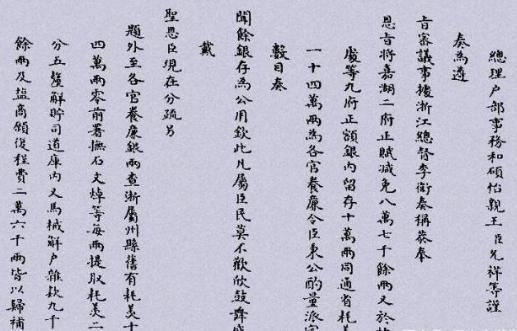 總理戶部事務和碩怡親王臣允祥等謹
奏為遵
旨審議事據浙江總督李衛奏稱恭奉
恩旨將嘉湖二府正賦減免八萬七千餘兩又於
處等九府正額銀內留存十萬兩同通省耗
一十四萬兩為各官養廉令臣秉公酌量派定
數目奏
聞餘銀存為公用欽此凡屬臣民莫不歡欣鼓舞感
戴
聖恩臣現在分疏另
題外至各官養廉銀兩查浙屬州縣舊有耗羨十
四萬兩零前署撫石文焯等每兩提取耗羨二
分五釐解貯司道庫內又馬械解戶雜款九千
餘兩及鹽商願復程費二萬六千兩皆以歸補